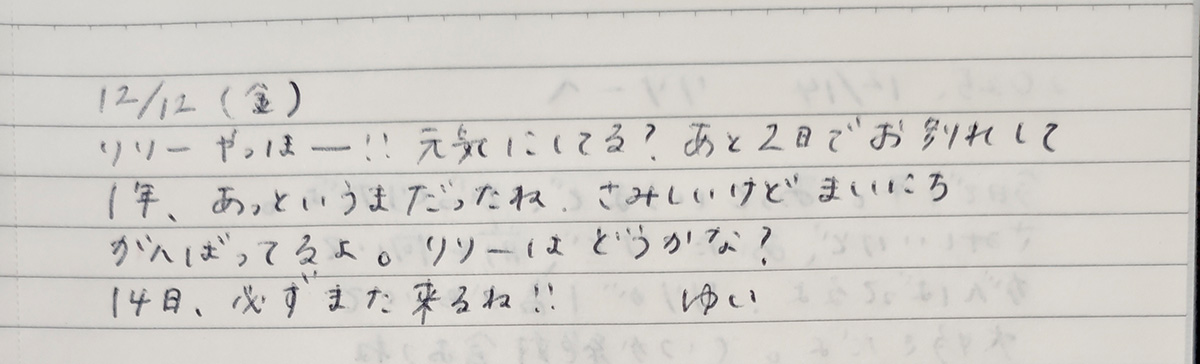 12/12 (金)
リリーやっほー!! 元気にしてる? あと2日でお別れして
1年、あっというまだったね。さみしいけどまいにち
がんばってるよ。リリーはどうかな?
14日、必ずまた来るね!! ゆい